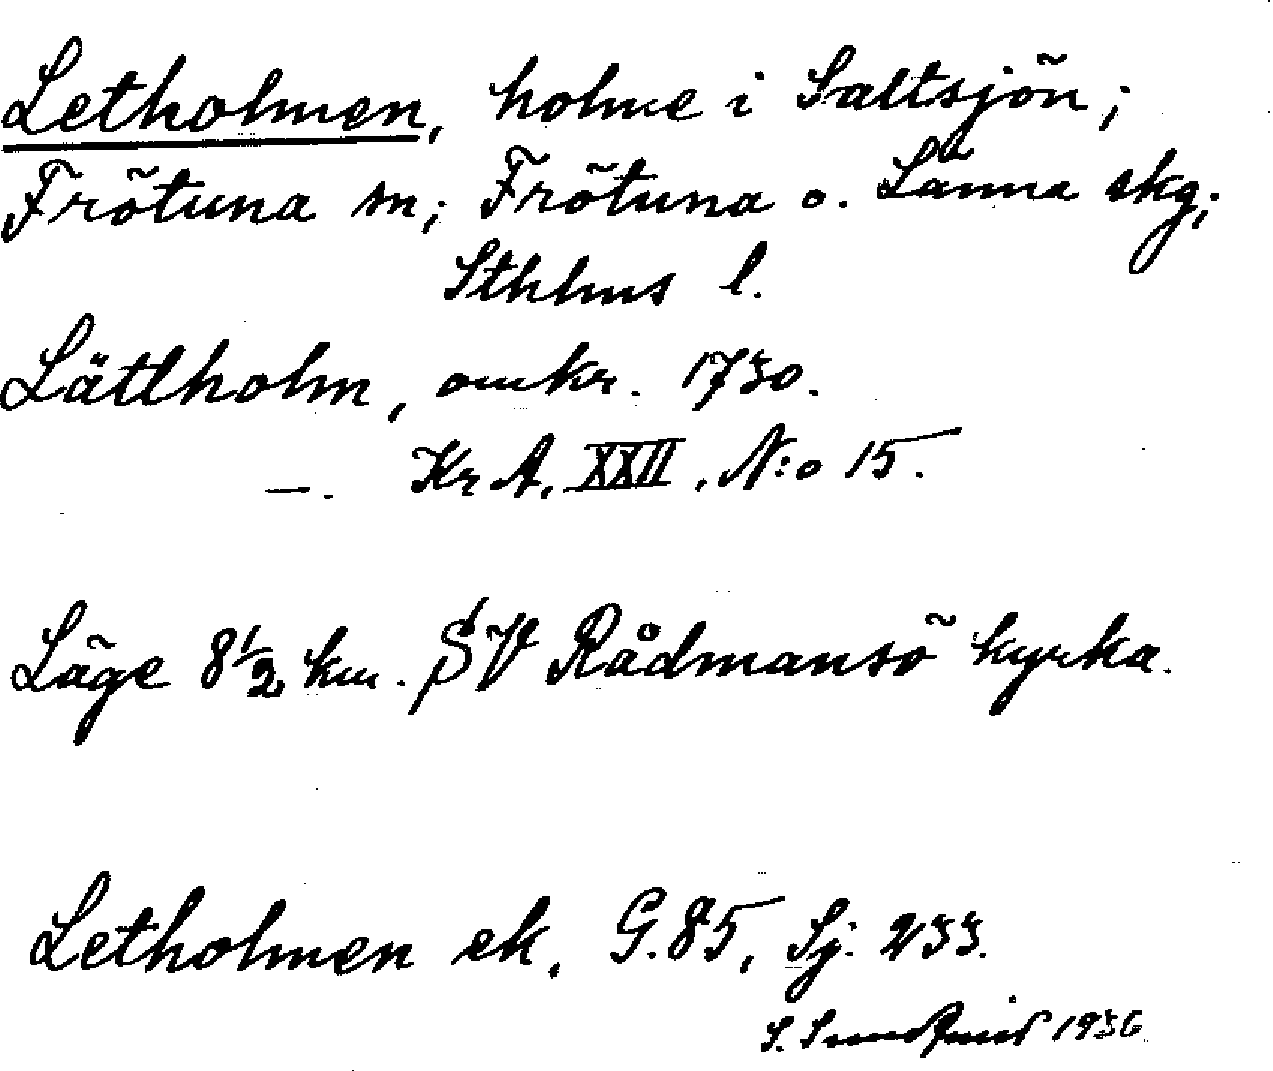 Letholmen, holme i Saltsjön;
Frötuna sn; Frötuna o. Länna skg;
Sthlms l.
Lättholm, omkr. 1730.
—. Kr A. XXII, N:o 15.
Läge 8 1/2 km. SV Rådmansö kyrka.
Letholmen ek. G. 85, Sj. 233.
S. Sundqvist 1936